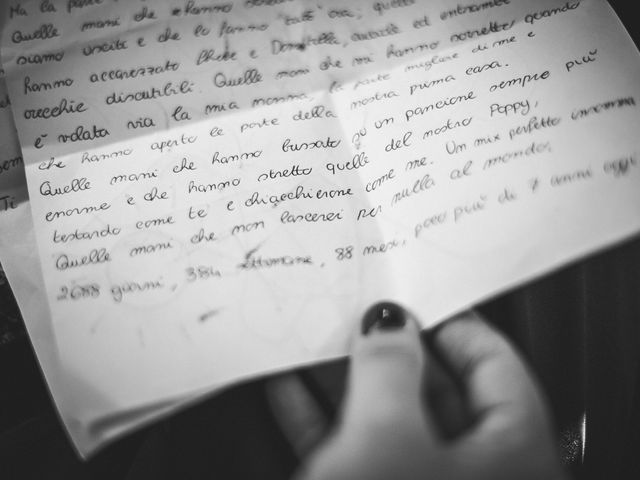 Ma la
Quelle mani che hanno
siamo usciti e che lo fanno tutt' ora, quelle
hanno accarezzato Phebe e Donatello, ed entrambe
orecchie discutibili. Quelle mani che mi hanno sorretto quando
è volata via la mia nonna, la parte migliore di me e
che hanno aperto le porte della nostra prima casa.
Quelle mani che hanno bussato su un pancione sempre più
enorme e che hanno stretto quelle del nostro Peppy,
testardo come te e chiacchierone come me. Un mix perfetto insomma
Quelle mani che non lascerei per nulla al mondo.
2688 giorni, 384 settimane, 88 mesi, poco più di 7 anni oggi
Ti